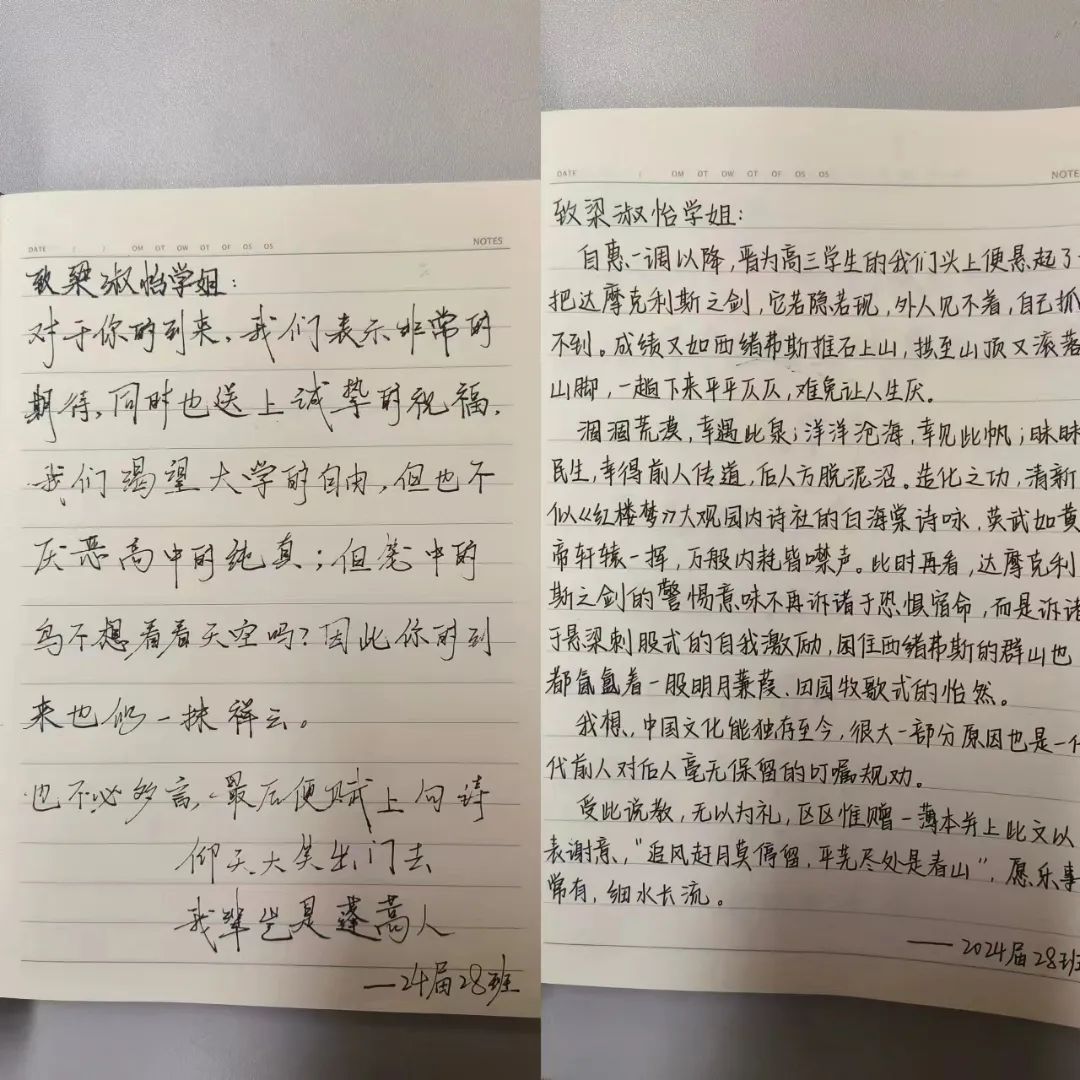 DATE ( ) OM OT OW OT OF OS OS NOTES
致梁淑怡学姐:
对于你的到来,我们表示非常的
期待,同时也送上诚挚的祝福.
我们渴望大学的自由,但也不
厌恶高中的纯真;但笼中的
鸟不想看看天空吗?因此你的到
来也似一抹祥云。
也不必多言,最后便赋上句诗
仰天大笑出门去
我辈岂是蓬蒿人
—24届28班
DATE ( OM OT OW OT OF OS OS NOTE
致梁淑怡学姐:
自惠一调以降,晋为高三学生的我们头上便悬起了一
把达摩克利斯之剑,它若隐若现,外人见不着,自己抓
不到。成绩又如西绪弗斯推石上山,拱至山顶又滚落
山脚,一趟下来平平仄仄,难免让人生厌。
涸涸荒漠,幸遇此泉;洋洋沧海,幸见此帆;昧昧
民生,幸得前人传道,后人方脱泥沼。造化之功,清新
似《红楼梦》大观园内诗社的白海棠诗咏,英武如黄
帝轩辕一挥,万般内耗皆噤声。此时再看,达摩克利
斯之剑的警惕意味不再诉诸于恐惧宿命,而是诉诸
于悬梁刺股式的自我激励,困住西绪弗斯的群山也
都氤氲着一股明月蒹葭、田园牧歌式的怡然。
我想,中国文化能独存至今,很大一部分原因也是一代
代前人对后人毫无保留的叮嘱规劝。
受此说教,无以为礼,区区惟赠一薄本并上此文以
表谢意,"追风赶月莫停留,平芜尽处是春山",愿乐事
常有,细水长流。
——2024届28班